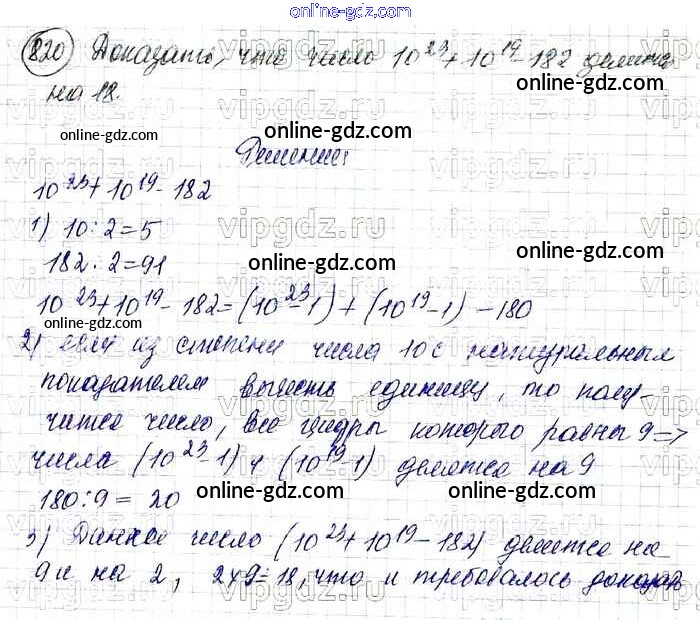 online-gdz.com
820 Доказать, что число 10²³ + 10¹⁹ - 182 делится
на 18.
online-gdz.com
online-gdz.com
Решение:
10²³ + 10¹⁹ - 182
1) 10 : 2 = 5
182 : 2 = 91
online-gdz.com
10²³ + 10¹⁹ - 182 = (10²³ - 1) + (10¹⁹ - 1) - 180
online-gdz.com
2) если из степени числа 10 с натуральным
показателем вычесть единицу, то полу-
чится число, все цифры которого равны 9 =>
числа (10²³ - 1) и (10¹⁹ - 1) делятся на 9
180 : 9 = 20
online-gdz.com
online-gdz.com
3) Данное число (10²³ + 10¹⁹ - 182) делится на
9 и на 2, 2 × 9 = 18, что и требовалось доказать
online-gdz.com
online-gdz.com
vipgdz.ru